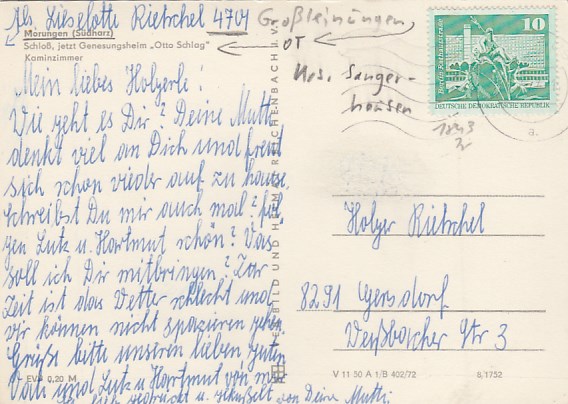 Abs. Lieselotte Rietschel 4701 Großleinungen,
Morungen (Südharz)
OT
Schloß, jetzt Genesungsheim „Otto Schlag"
Kaminzimmer
Krs. Sanger-
hausen
10
Berlin
DEUTSCHE DEMOKRATISCHE REPUBLIK
Mein liebes Holgerle!
Wie geht es Dir? Deine Mutti
denkt viel an Dich und freut
sich schon wieder auf zu hause.
Schreibst Du mir auch mal? fol-
gen Lutz u. Hartmut schön? Was
soll ich Dir mitbringen? Zur
Zeit ist das Wetter schlecht und
wir können nicht spazieren gehen.
Grüße bitte unseren lieben guten
Vati und Lutz u. Hartmut von mir
gedrückt u. geküßt von Deine Mutti.
BILD UND HEIMAT REICHENBACH I. V.
Holger Rietschel
8291 Gersdorf
Weißbacher Str 3
EVP 0,20 M
V 11 50 A 1/B 402/72
8/1752